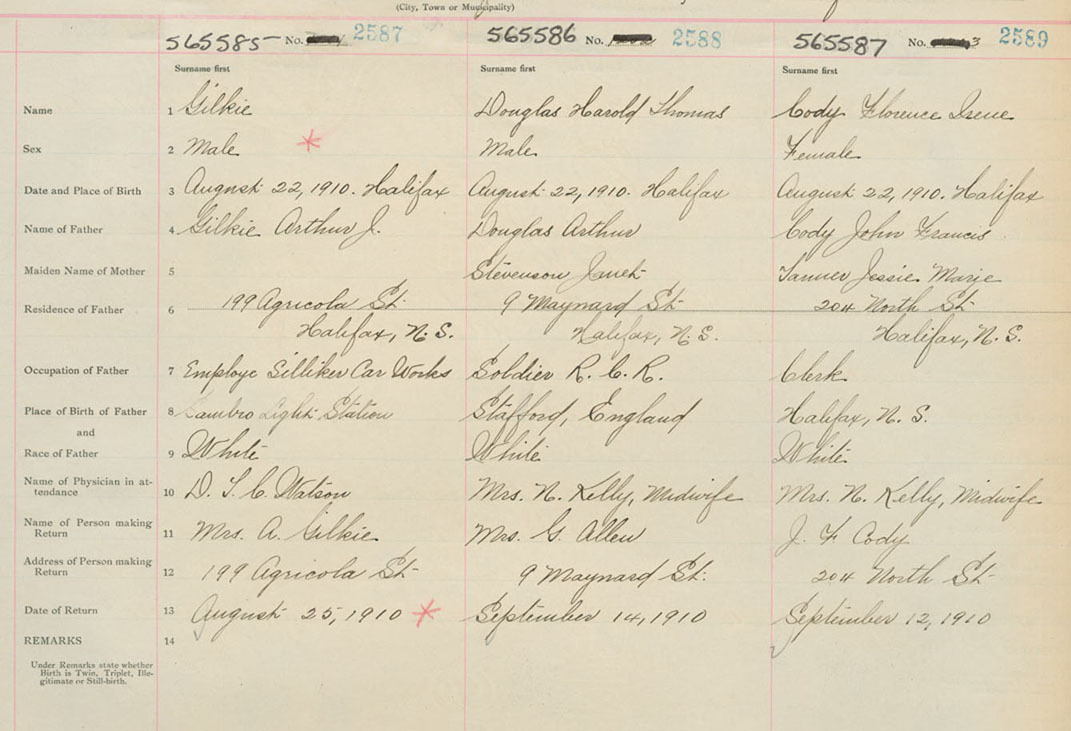 (City, Town or Municipality)
565585 No. 2587 565586 No. 2588 565587 No. 3 2589
Surname first Surname first Surname first
Name 1 Gilkie Douglas Harold Thomas Cody Florence Irene
Sex 2 Male * Male Female
Date and Place of Birth 3 August 22, 1910. Halifax August 22, 1910. Halifax August 22, 1910. Halifax
Name of Father 4 Gilkie Arthur J. Douglas Arthur Cody John Francis
Maiden Name of Mother 5 Stevenson Janet Tanner Jessie Marie
Residence of Father 6 199 Agricola St 9 Maynard St 204 North St
Halifax, N.S. Halifax, N.S. Halifax, N.S.
Occupation of Father 7 Employe Silliker Car Works Soldier R.C.R. Clerk
Place of Birth of Father 8 Sambro Light Station Stafford, England Halifax, N.S.
and
Race of Father 9 White White White
Name of Physician in at-
tendance 10 D. T. C. Watson Mrs. N. Kelly, Midwife Mrs. N. Kelly, Midwife
Name of Person making
Return 11 Mrs. A. Gilkie Mrs. G. Allen J. F Cody
Address of Person making
Return 12 199 Agricola St 9 Maynard St. 204 North St
Date of Return 13 August 25, 1910 * September 14, 1910 September 12, 1910
REMARKS 14
Under Remarks state whether
Birth is Twin, Triplet, Ille-
gitimate or Still-birth.